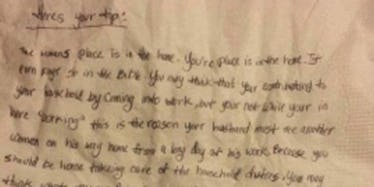 Heres your tip:
The womans place is in the home. You're place is in the home. It
even says so in the Bible. You may think that your contributing to
your household by coming into work, but your not. While your in
here "working" this is the reason your husband must see another
women on his way home from a long day at his work. Because you
should be home taking care of the household duties. You may
think